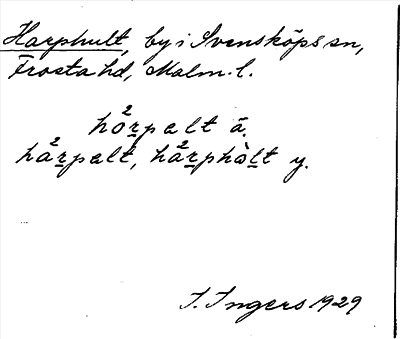 Harphult, by i Svensköps sn,
Frosta hd, Malm. l.
hǫ²rpalt ä.
ha²rpalt, ha²rphàlt y.
I. Ingers 1929